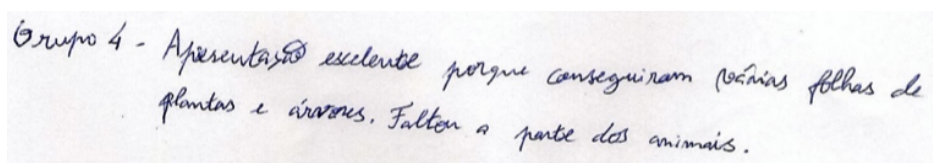 Grupo 4 - Apresentação excelente porque conseguiram várias folhas de
plantas e árvores. Faltou a parte dos animais.